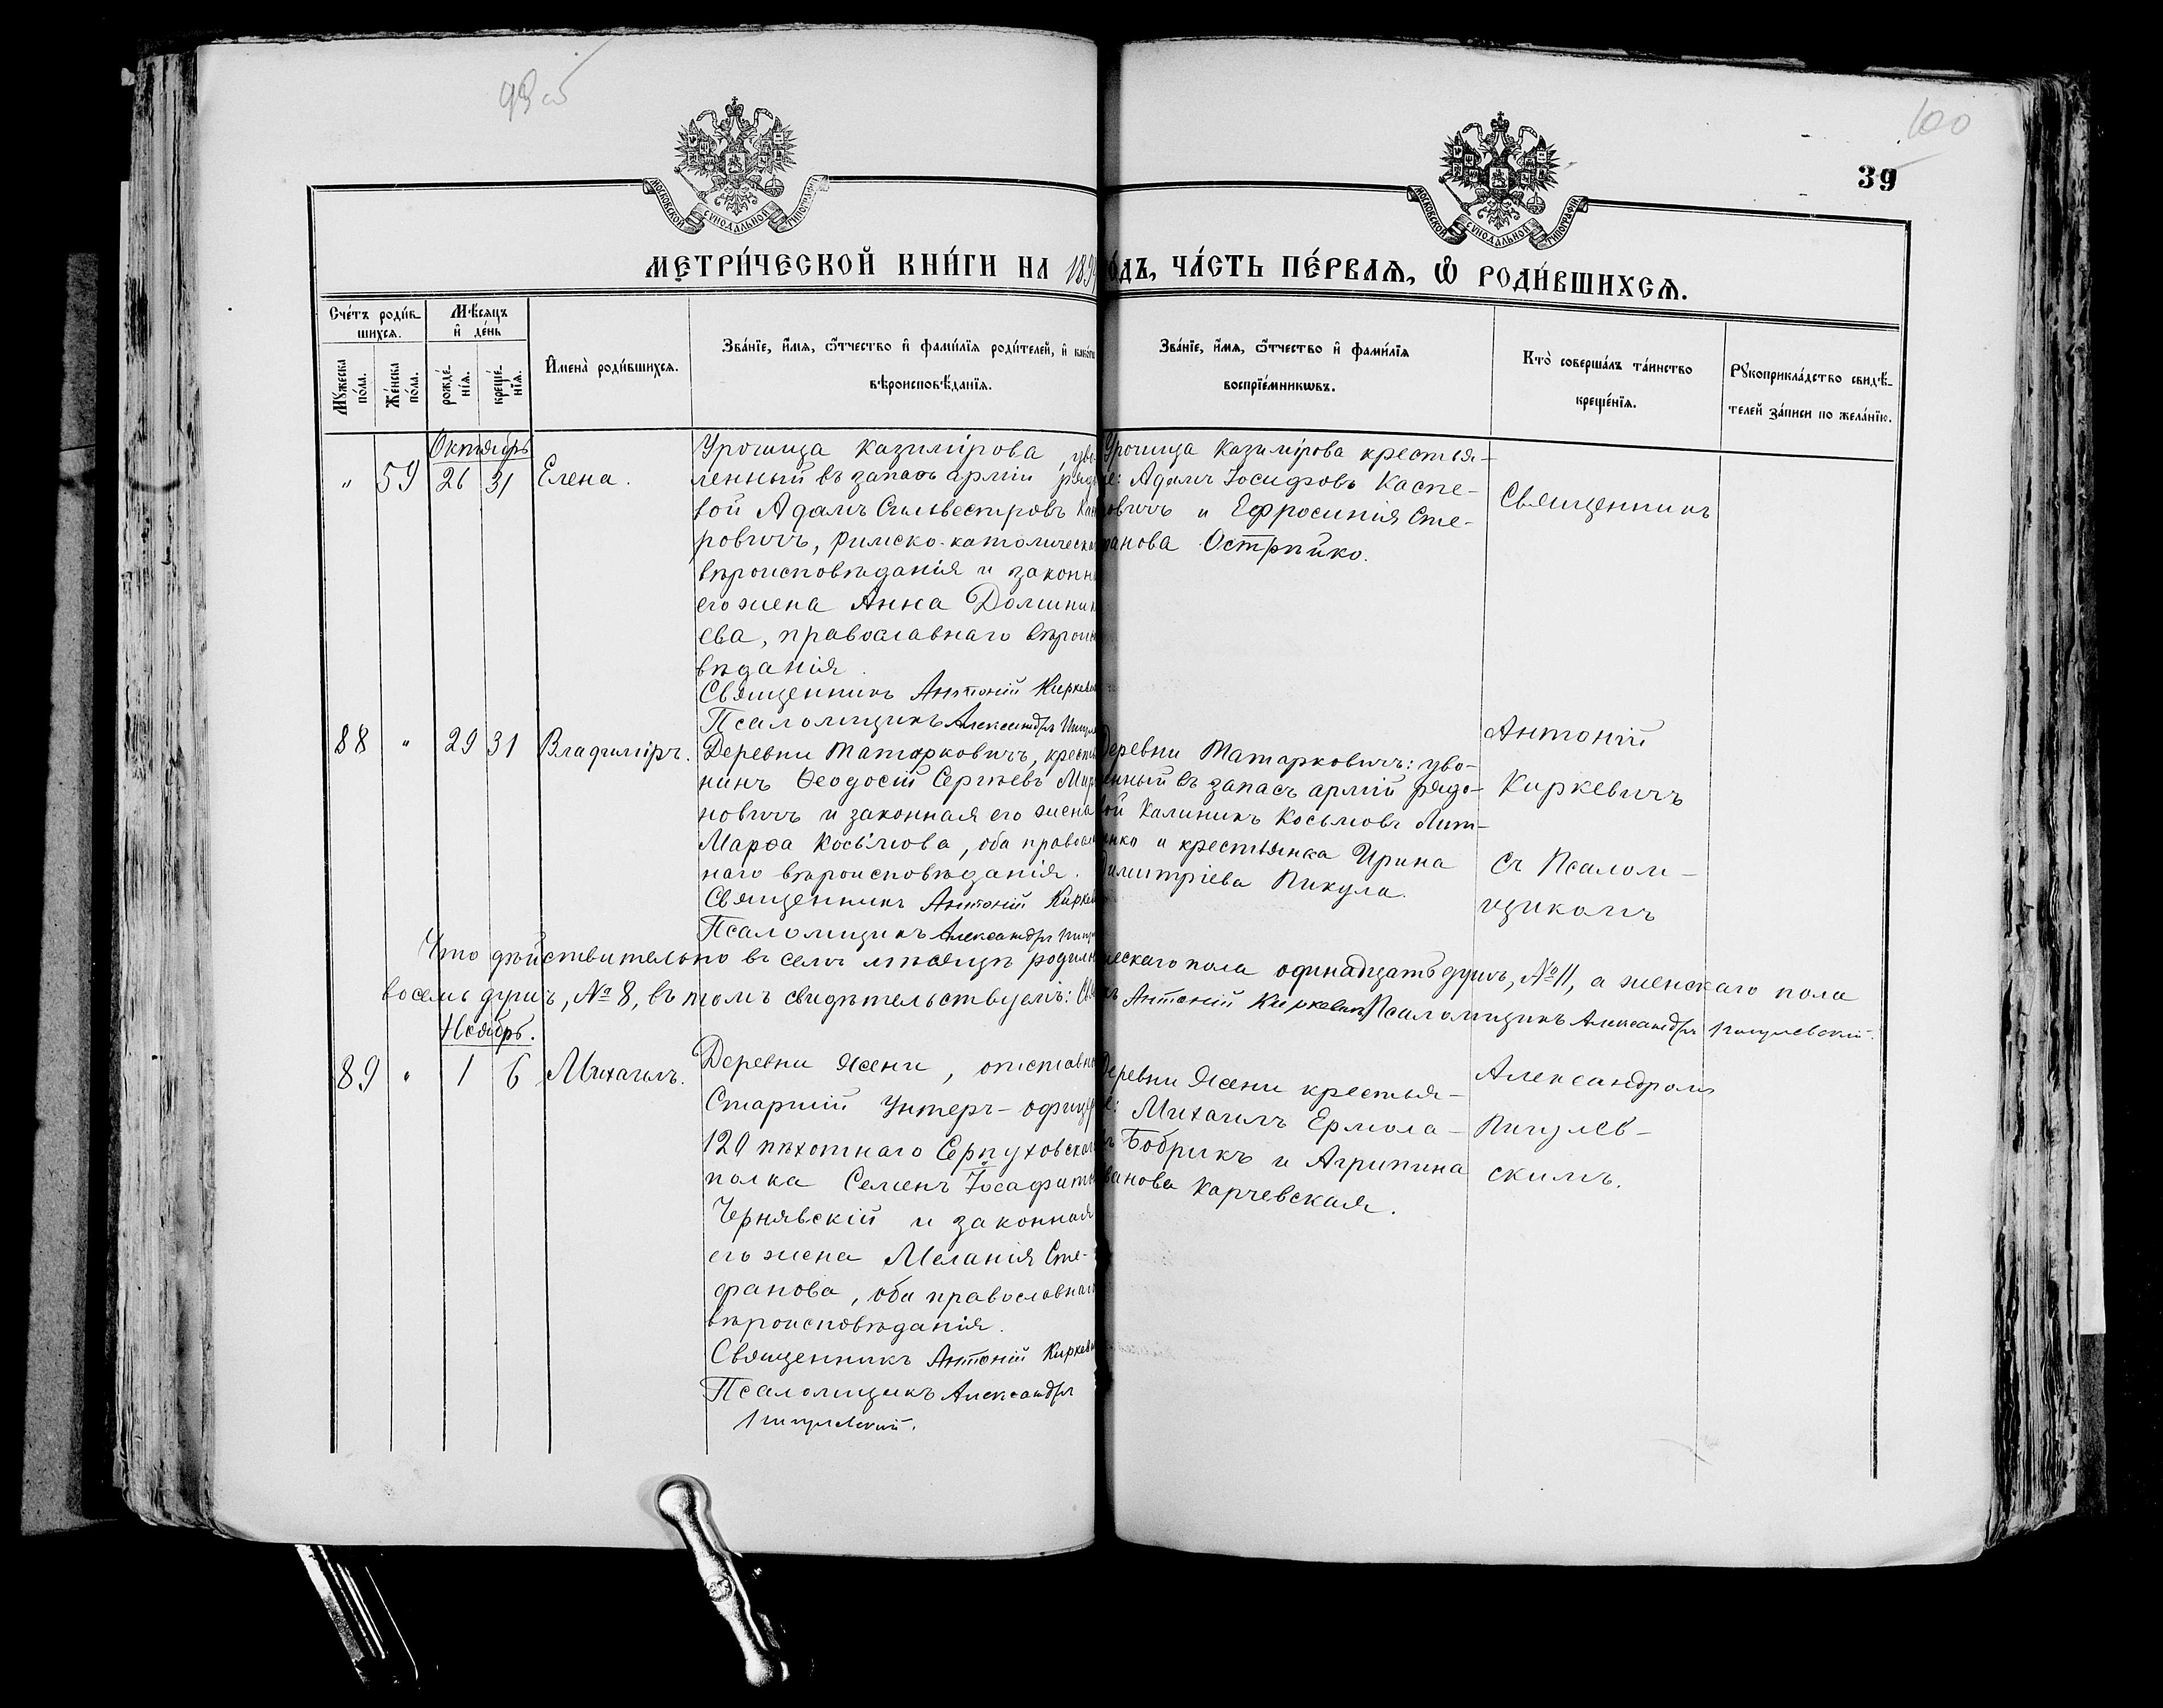 93 об
100
39
МОСКОВСКОЙ СѴНОДАЛЬНОЙ ТИПОГРАФІИ
МОСКОВСКОЙ СѴНОДАЛЬНОЙ ТИПОГРАФІИ
МЕТРИ́ЧЕСКОЙ КНИ́ГИ НА 189
О́ДЪ, ЧА́СТЬ ПЕ́РВАѦ, Ѽ РОДИ́ВШИХСѦ.
Сче́тъ роди́в-
шихсѧ.
Мѣ́сѧцъ
и҆ де́нь
Мꙋ́жеска по́ла.
Же́нска по́ла.
рожде́-
нїѧ.
креще́-
нїѧ.
И҆мена̀ роди́вшихсѧ.
Зва́нїе, и҆́мѧ, ѻ҆́тчество и҆ фами́лїѧ роди́телей, и҆ како́гѡ
вѣроисповѣ́данїѧ.
Зва́нїе, и҆́мѧ, ѻ҆́тчество и҆ фами́лїѧ
воспрїе́мникѡвъ.
Кто̀ соверша́лъ та́инство
креще́нїѧ.
Рꙋкоприкла́дство свидѣ́-
телей за́писи по жела́нїю.
Октябрь
" 59 26 31 Елена.
Урочища Казимірова, уво-
ленный въ запасъ арміи рядо
вой Адамъ Сильвестровъ Кас
ровичъ, римско-католическа
вѣроисповѣданія и законн
его жена Анна Доминик
ева, православнаго вѣроис
вѣданія.
Священникъ Антоній Киркеви
Псаломщикъ Александръ Пигул
Урочища Казимірова крестья-
е: Адамъ Іосифовъ Каспе-
ровичъ и Ефросинія Сте-
фанова Острейко.
88 " 29 31 Владиміръ.
Деревни Татарковичъ, крестья
нинъ Ѳеодосій Сергѣевъ Мир
новичъ и законная его жена
Марѳа Косьмова, оба правосла
наго вѣроисповѣданія.
Священникъ Антоній Киркев
Псаломщикъ Александръ Пигул
Деревни Татарковичъ: уво-
ленный въ запасъ арміи рядо-
вой Калиникъ Косьмовъ Лит-
енко и крестьянка Ирина
Димитріева Пикула.
Что дѣйствительно въ семъ мѣсяцѣ родилось
ческаго пола одинадцать душъ, № 11, а женскаго пола
восемь душъ, № 8, въ томъ свидѣтельствуемъ: Свя
ъ Антоній Киркевичъ Псаломщикъ Александръ Пигулевскій.
Ноябрь.
89 " 1 6 Михаилъ.
Деревни Ясени, отставн
Старшій Унтеръ-офице
120 пѣхотнаго Серпуховскаго
полка Семенъ Іосафатов
Чернявскій и законная
его жена Меланія Сте-
фанова, оба православнаго
вѣроисповѣданія.
Священникъ Антоній Киркеви
Псаломщикъ Александръ
Пигулевскій.
Деревни Ясени крестья-
е: Михаилъ Ермола-
въ Бобрикъ и Агрипина
Иванова Карчевская.
Священникъ
Антоній
Киркевичъ
съ Псалом-
щикомъ
Александромъ
Пигулев-
скимъ.